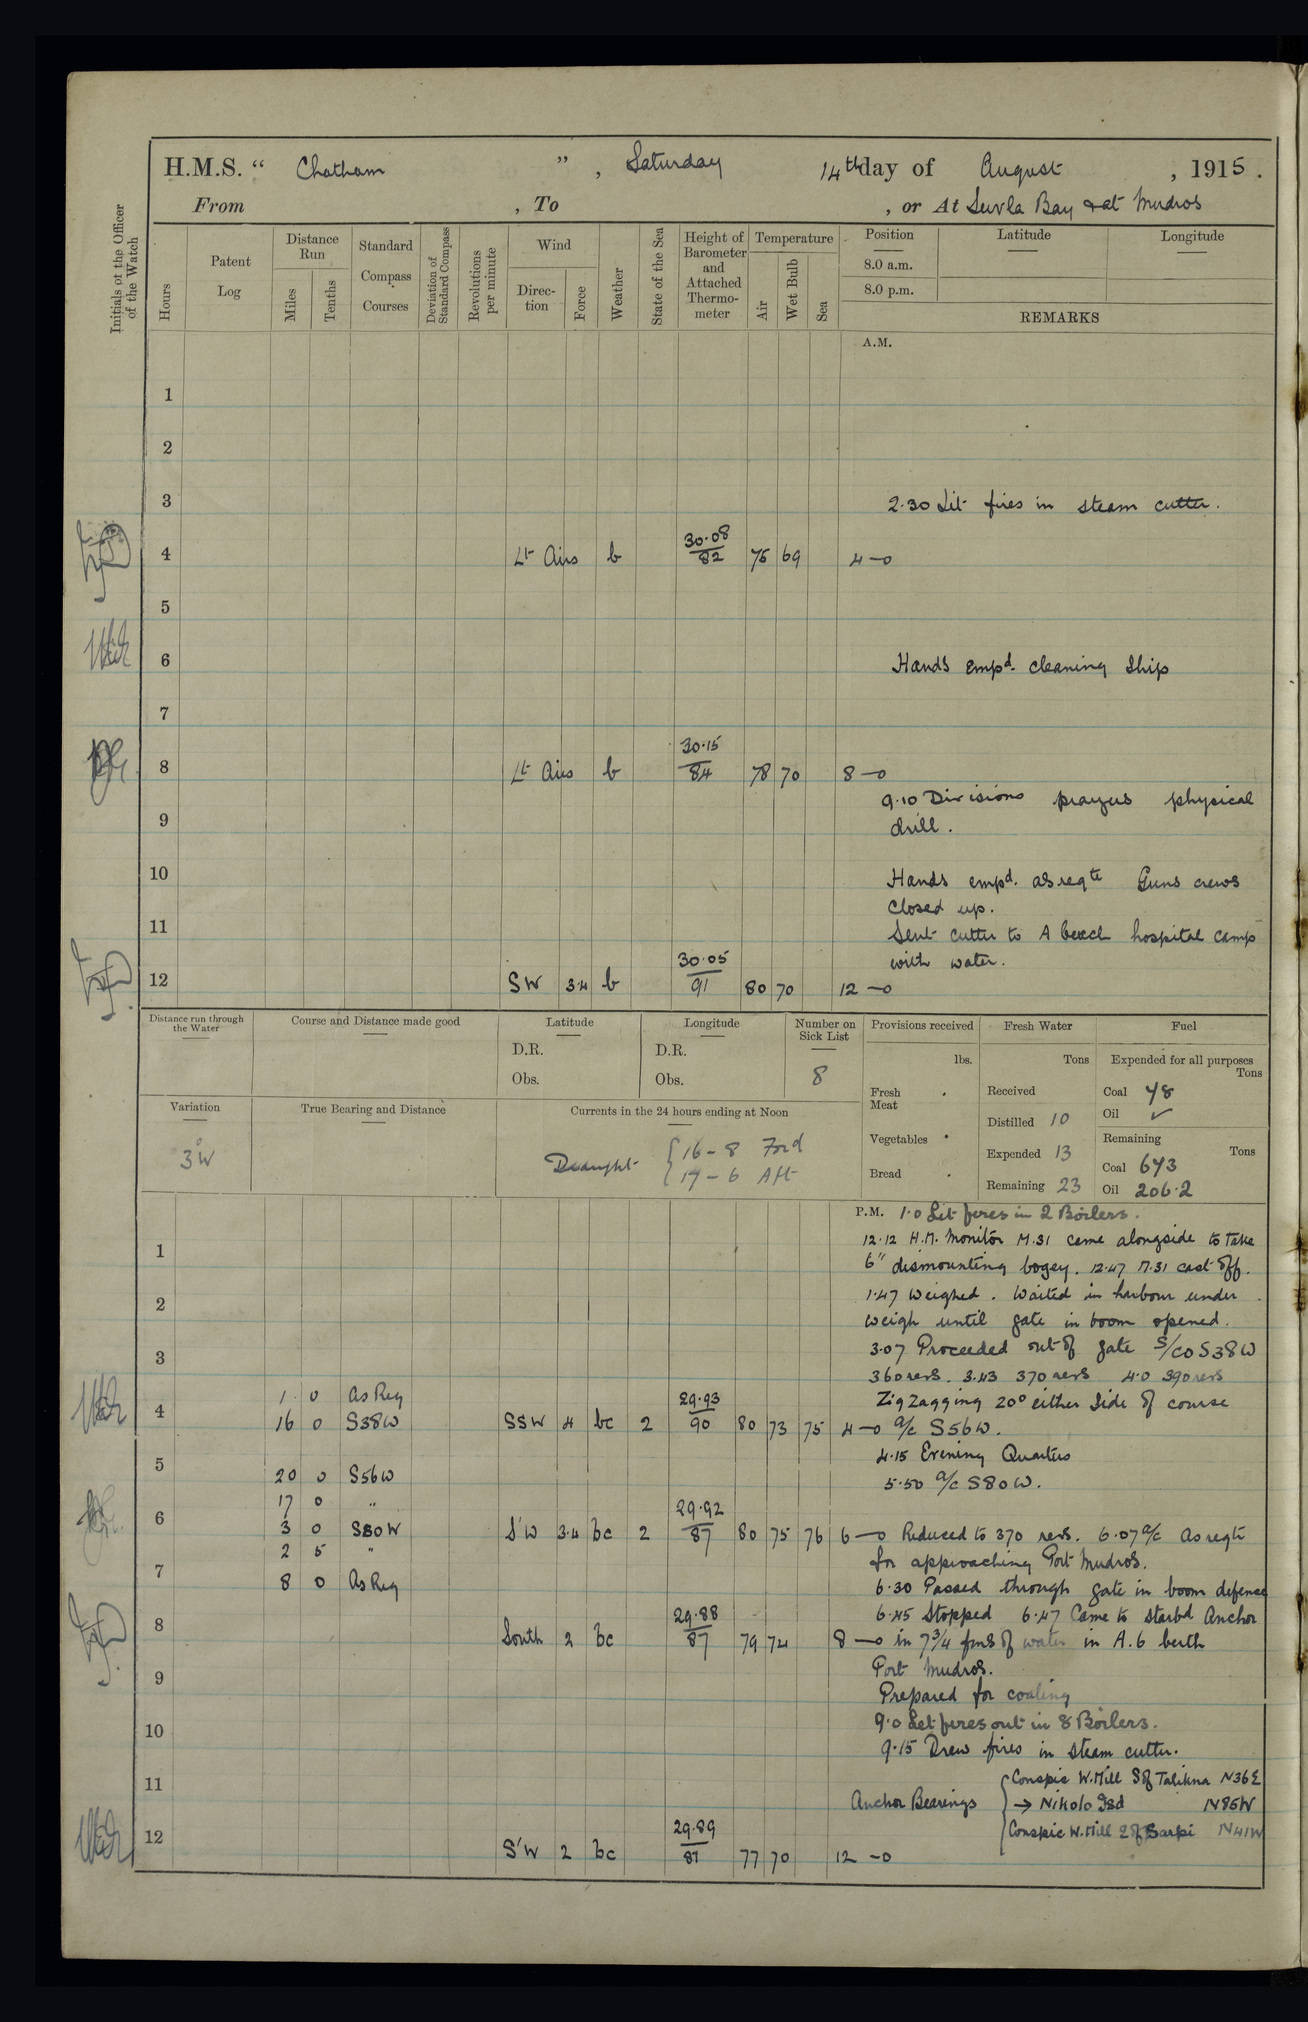 H.M.S. “ Chatham ”, Saturday 14th day of August, 1915.
From , To , or At Suvla Bay & at Mudros
Initials of the Officer of the Watch
Hours
Patent Log
Distance Run
Miles
Tenths
Standard Compass Courses
Deviation of Standard Compass
Revolutions per minute
Wind
Direction
Force
Weather
State of the Sea
Height of Barometer and Attached Thermometer
Temperature
Air
Wet Bulb
Sea
Position
8.0 a.m.
8.0 p.m.
Latitude
Longitude
REMARKS
A.M.
1
2
3 2.30 Lit fires in steam cutter.
4 Lt Airs b 30.08 82 76 69 4—0
5
6 Hands empd. cleaning Ship
7
8 Lt Airs b 30.15 84 78 70 8—0
9.10 Divisions prayers physical
9 drill.
10 Hands empd. as reqte Guns crews
closed up.
11 Sent cutter to A beach hospital camp
with water.
12 SW 3.4 b 30.05 91 80 70 12—0
Distance run through the Water
Course and Distance made good
Latitude
D.R.
Obs.
Longitude
D.R.
Obs.
Number on Sick List
8
Provisions received
lbs.
Fresh Meat
Vegetables
Bread
Fresh Water
Tons
Received
Distilled 10
Expended 13
Remaining 23
Fuel
Expended for all purposes
Tons
Coal 48
Oil ✓
Remaining
Tons
Coal 643
Oil 206.2
Variation
3°W
True Bearing and Distance
Currents in the 24 hours ending at Noon
Draught { 16 - 8 Ford
17 - 6 Aft
P.M. 1.0 Lit fires in 2 Boilers.
12.12 H.M. Monitor M.31 came alongside to take
1 6" dismounting bogey. 12.47 M.31 cast off.
1.47 Weighed. Waited in harbour under
2 weigh until gate in boom opened.
3.07 Proceeded out of gate S/co S38W
3 360 revs. 3.43 370 revs 4.0 390 revs
1 0 As Req Zig Zagging 20° either side of course
4 16 0 S38W SSW 4 bc 2 29.93 90 80 73 75 4—0 a/c S56W.
4.15 Evening Quarters
5 20 0 S56W 5.50 a/c S80W.
17 0 "
6 3 0 S80W S'W 3.4 bc 2 29.92 87 80 75 76 6—0 Reduced to 370 revs. 6.07 a/c as reqte
2 5 " for approaching Port Mudros.
7 8 0 As Req 6.30 Passed through gate in boom defence
6.45 Stopped 6.47 Came to starbd Anchor
8 South 2 bc 29.88 87 79 74 8—0 in 7¾ fms of water in A.6 berth
Port Mudros.
9 Prepared for coaling
10 9.0 Let fires out in 8 Boilers.
9.15 Drew fires in steam cutter.
11 Anchor Bearings { Conspic W.Mill S of Talikna N36E
→ Nikolo Isd N85W
Conspic W.Mill E of Sarpi N41W
12 S'W 2 bc 29.89 87 77 70 12—0